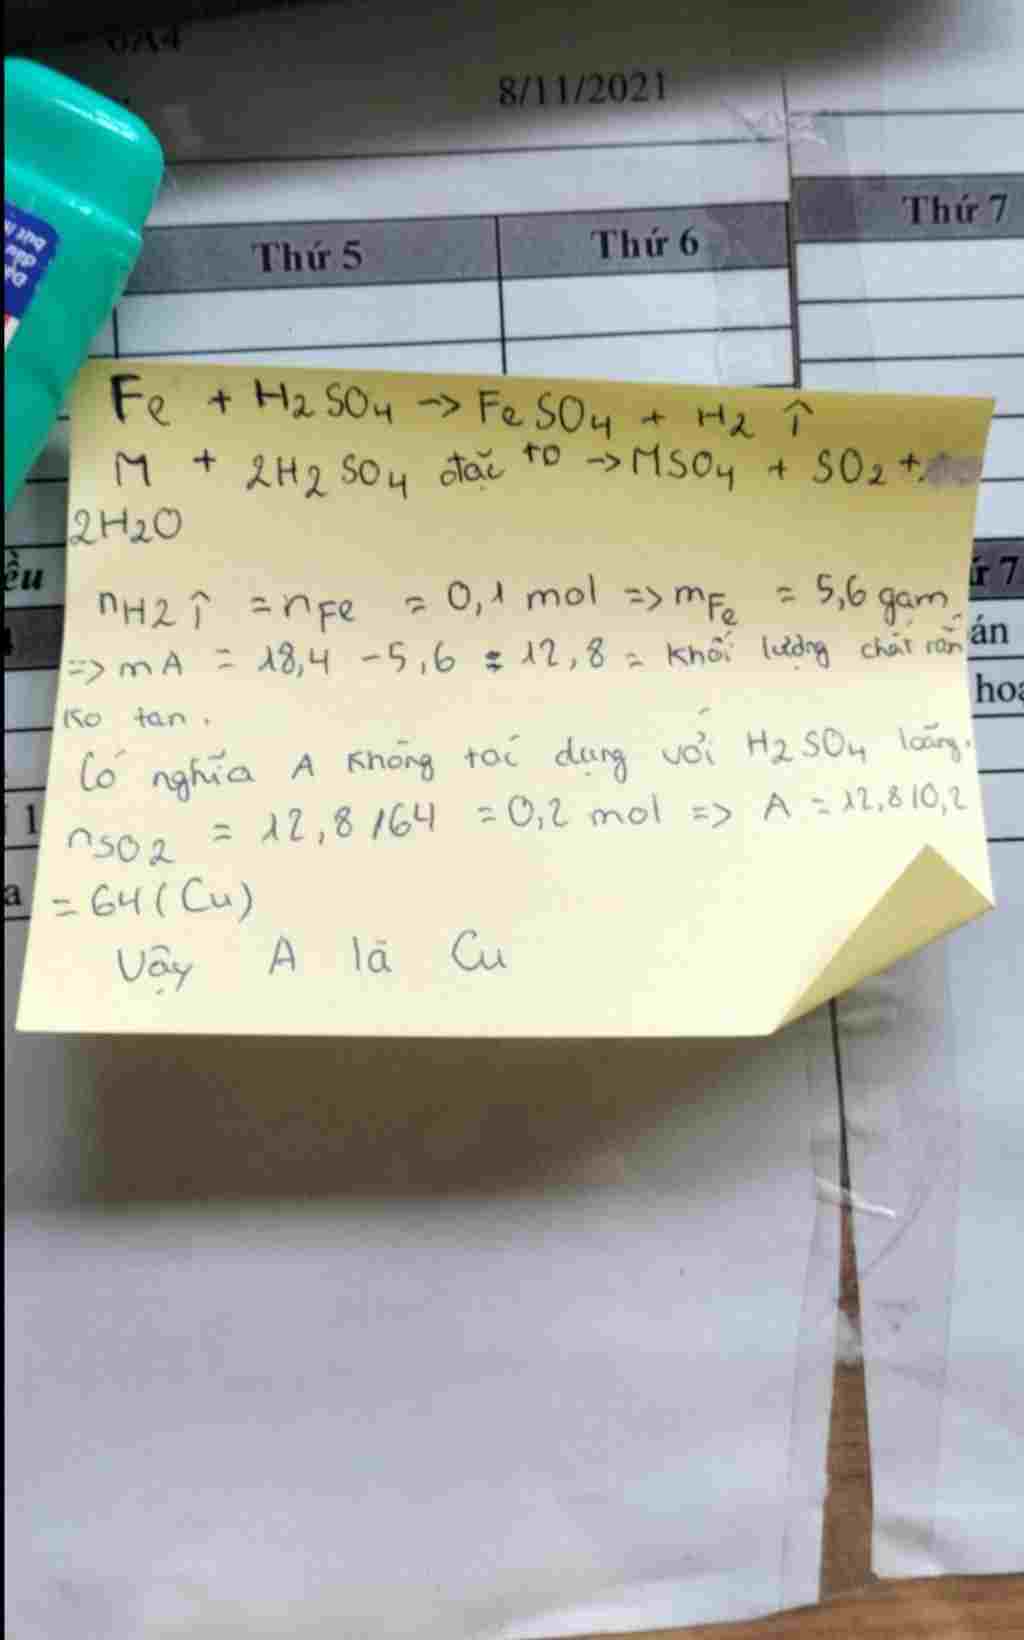 6A4
8/11/2021
Thứ 5
Thứ 6
Thứ 7
Fe + H2SO4 -> FeSO4 + H2 ↑
M + 2H2SO4 đặc to -> MSO4 + SO2 +
2H2O
nH2↑ = nFe = 0,1 mol => mFe = 5,6 gam
=> mA = 18,4 - 5,6 = 12,8 = khối lượng chất rắn
ko tan.
Có nghĩa A không tác dụng với H2SO4 loãng.
nSO2 = 12,8/64 = 0,2 mol => A = 12,8/0,2
= 64 (Cu)
Vậy A là Cu